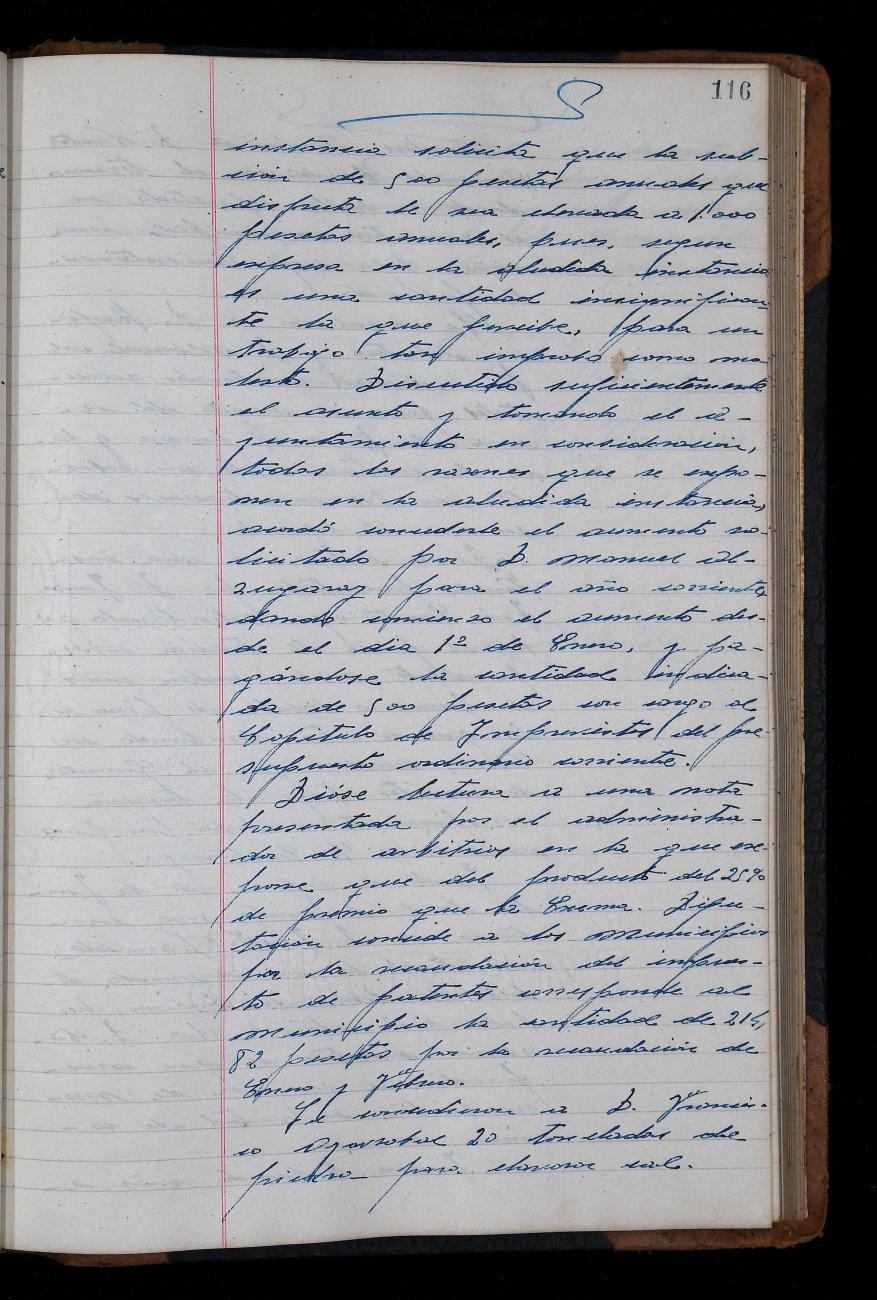 116
instancia solicita que la sub-
ción de 500 pesetas anuales que
disfruta le sea elevada a 1.000
pesetas anuales, pues, segun
expresa en la aludida instancia
es una cantidad insignifican-
te la que percibe, para un
trabajo tan improbo como mo-
lesto. Discutido suficientemente
el asunto y tomando el A-
yuntamiento en consideración,
todas las razones que se expo-
nen en la aludida instancia,
acordó concederle el aumento so-
licitado por D. Manuel Al-
zugaray para el año corriente,
dando comienzo el aumento des-
de el dia 1º de Enero, y pa-
gándose la cantidad indica-
da de 500 pesetas con cargo al
Capitulo de Imprevistos del pre
supuesto ordinario corriente.
Dióse lectura a una nota
presentada por el administra-
dor de arbitrios en la que ex-
pone que del producto del 25%
de premio que la Excma. Dipu-
tación concede a los Municipios
por la recaudación del impues-
to de patentes corresponde al
Municipio la cantidad de 214,
82 pesetas por la recaudación de
Enero y Febrero.
Se concedieron a D. Francis-
co Oyarzabal 20 toneladas de
piedra para elaborar cal.